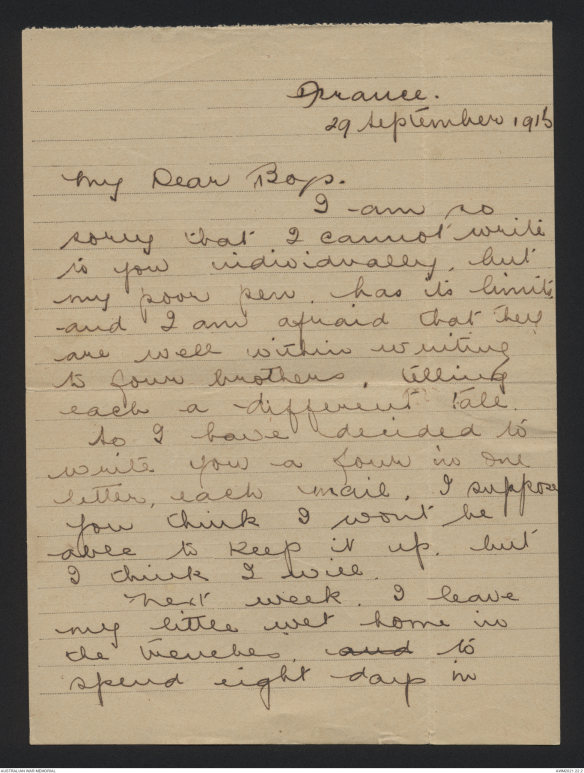 France.
29 September 1916
My Dear Boys.
I am so
sorry that I cannot write
to you individually, but
my poor pen, has its limits,
and I am afraid that they
are well within writing
to four brothers, telling
each a different tale.
So I have decided to
write you a four in one
letter, each mail, I suppose
you think I wont be
able to keep it up, but
I think I will.
Next week, I leave
my little wet home in
the trenches, and to
spend eight days in
AUSTRALIAN WAR MEMORIAL